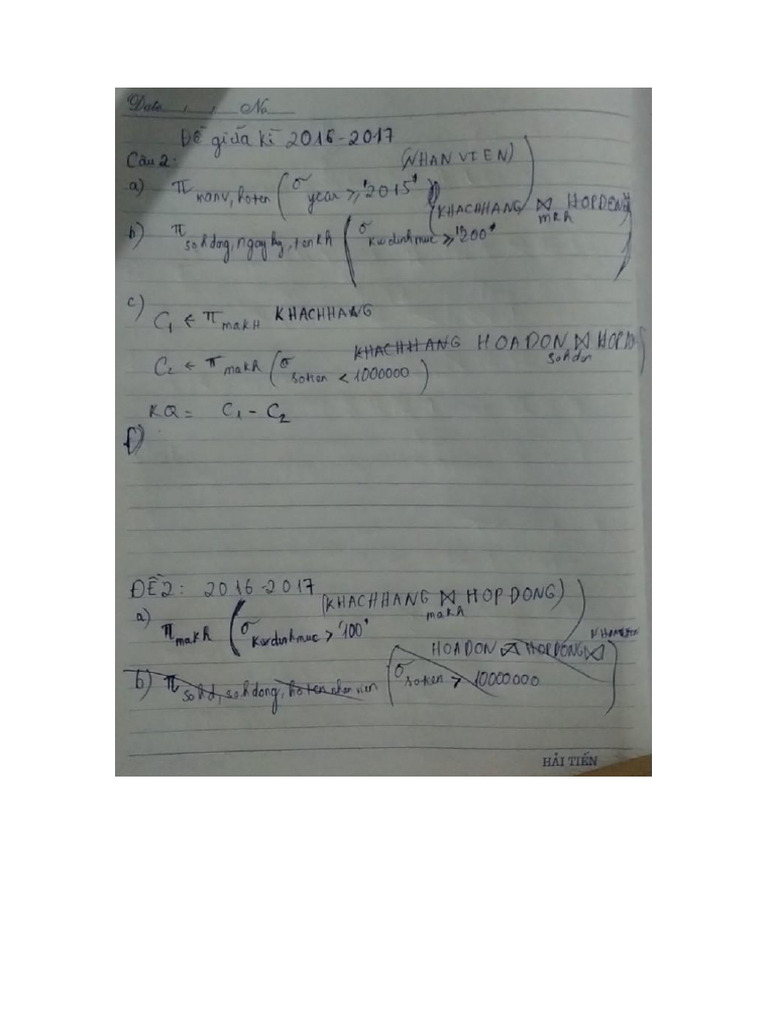 Date , , No
Đề giữa kì 2016-2017
Câu 2:
a) π manv, hoten ( σ year >, '2015' (NHANVIEN) )
b) π sohdong, ngayky, tenkh ( σ kwdinhmuc >, '200' (KHACHHANG ⋈ makh HOPDONG )
c) C1 ← π makH KHACHHANG
C2 ← π makh ( σ sotien < 1000000 ) KHACHHANG HOADON ⋈ sohdon HOPDO
KQ = C1 - C2
f)
ĐỀ 2: 2016-2017
a) π makh ( σ kwdinhmuc > '100' (KHACHHANG ⋈ makh HOPDONG) )
b) π sohd, sohdong, hotennhanvien ( σ sotien > 10000000 HOADON ⋈ HOPDONG ⋈ )
HẢI TIẾN